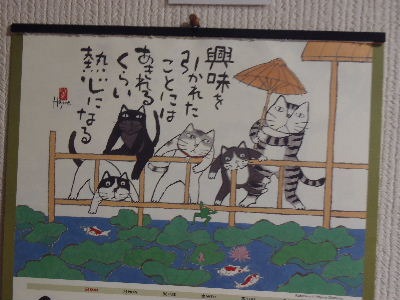 興味を
引かれた
ことには
あきれる
くらい
熱心になる
Hajime